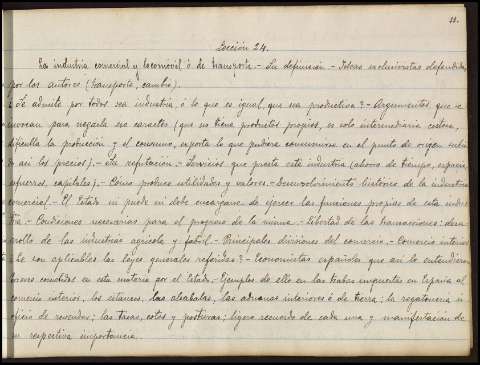 11.
Lección 24.
La industria comercial y locomóvil ó de transporte.- Su definición.- Ideas exclusivistas defendidas
por los autores (transporte, cambio).
¿Se admite por todos sea industria, ó lo que es igual, que sea productiva?- Argumentos que se
invocan para negarla ese carácter (que no tiene productos propios, es solo intermediaria costosa,
dificulta la producción y el consumo, exporta lo que pudiera consumirse en el punto de origen subien
do así los precios).- Su refutación.- Servicios que presta esta industria (ahorro de tiempo, espacio,
esfuerzos, capitales).- Como produce utilidades y valores.- Desenvolvimiento histórico de la industria
comercial.- El Estado ni puede ni debe encargarse de ejercer las funciones propias de esta indus
tria.- Condiciones necesarias para el progreso de la misma.- Libertad de las transacciones: desa
rrollo de las industrias agrícola y fabril.- Principales divisiones del comercio.- Comercio interior
¿Le son aplicables las leyes generales referidas?- Economistas españoles que así lo entendieron
Errores cometidos en esta materia por el Estado.- Ejemplos de ello en las trabas impuestas en España al
comercio interior, los estancos, las alcabalas, las aduanas interiores ó de tierra; la regatonería u
oficio de revender; las tasas, cotos y posturas; ligero recuerdo de cada una y manifestación de
su respectiva importancia.